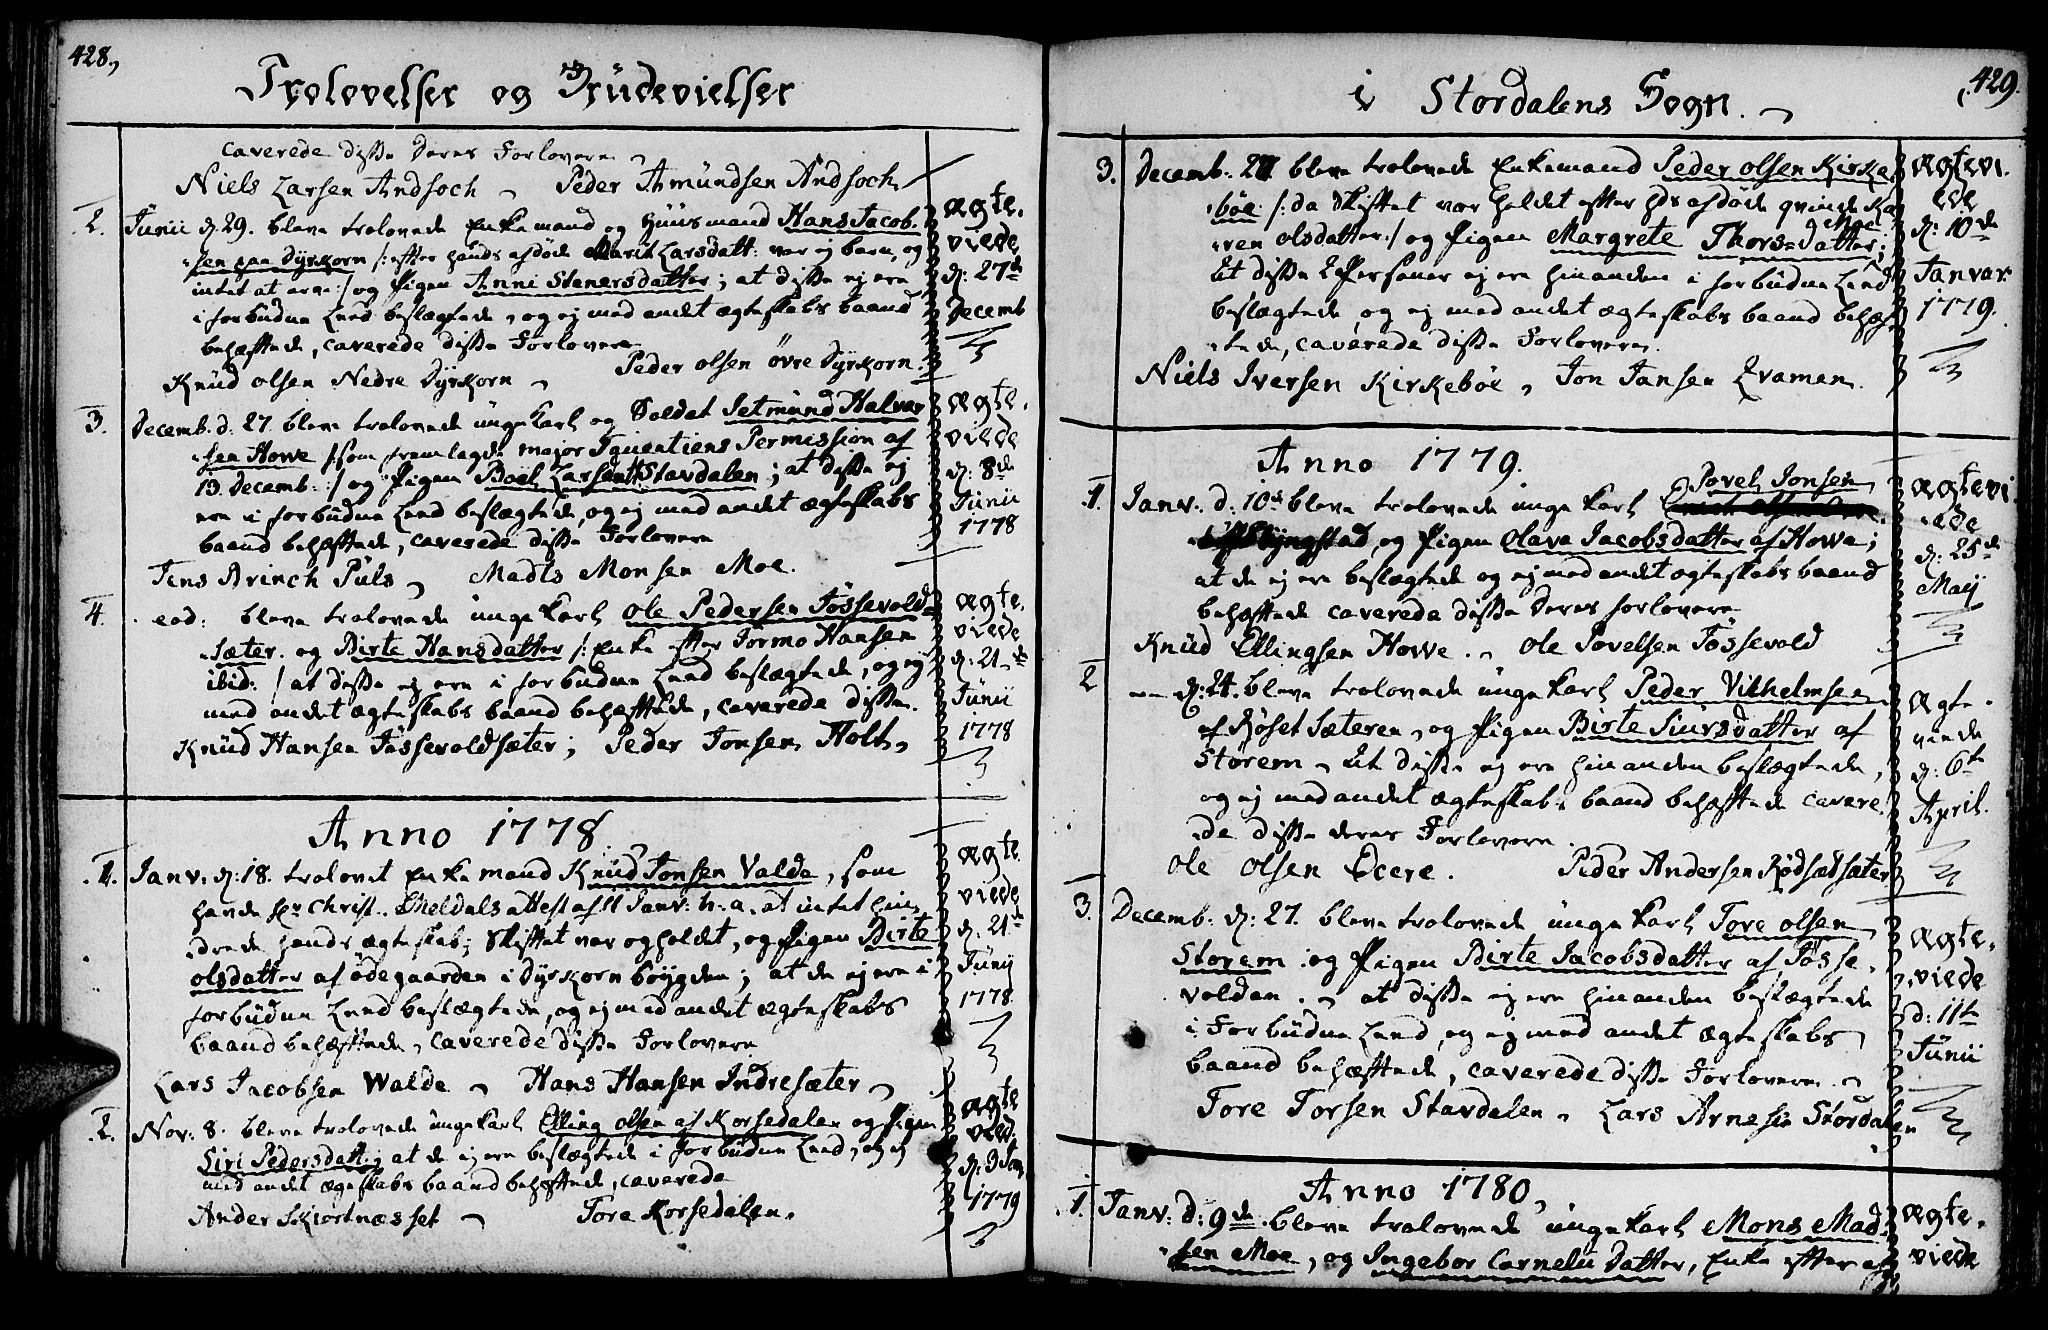 428.
Trolovelser og Brudevielser
caverede disse deres Forlovere
Niels Larsen Andsoch Peder Amundsen Andsoch
2. Junii d. 29. bleve trolovede Enkemand og Huusmand Hans Jacob-
sen paa Dyrkorn /: efter hands afdöde Marit Larsdatt: var ej barn, og
intet at arve :/ og Pigen Anni Stenersdatter; at disse ej ere
i forbudne Leed beslægtede, og ej med andet ægteskabs baand
behæftede, caverede disse Forlovere
Knud Olsen Nedre Dyrkorn Peder Olsen övre Dyrkorn.
ægte-
viede
d: 27de
Decemb
3. Decemb. d: 27. bleve trolovede unge karl og Soldat Setmund Halvar
sen Howe /: som fremlagde major Permission af
13. Decemb. :/ og Pigen Boel Larsdatt: Stavdalen; at disse ej
ere i forbudne Leed beslægtede, og ej med andet ægteskabs
baand behæftede, caverede disse Forlovere
Jens Brinch Puls Madts Monsen Moe.
ægte-
viede
d: 8de
Junii
1778
4. eod: bleve trolovede unge karl Ole Pedersen Fössevold-
sæter. og Birte Hansdatter /: Enke efter Tormo Hansen
ibid: / at disse ej ere i forbudne Leed beslægtede, og ej
med andet ægteskabs baand behæftede, caverede disse.
Knud Hansen Fössevoldsæter; Peder Jonsen Holt
ægte-
viede
d: 21de
Junii
1778
Anno 1778
1. Janv. d: 18. trolovet Enkemand Knud Jonsen Valde, som
havde Christ. Meldals attest af 11 Janv: h: a. at intet hin-
drede hands ægteskab; Skiftet var og holdet, og Pigen Birte
olsdatter af ödegaarden i Dyrkorn böygden; at de ej ere i
forbudne Leed beslægtede, og ej med andet ægteskabs
baand behæftede, caverede disse Forlovere
Lars Jacobsen Walde Hans Hansen Indresæter
ægte
viede
d: 21de
Junij
1778
2. Nov: 8. bleve trolovede unge karl Elling Olsen af Korsedalen og Pigen
Siri Pedersdatt; at de ej ere beslægtede i forbudne Leed, og ej
med andet ægteskabs baand behæftede, caverede
Ander Skiortnæsset Tore Korsedalen.
ægte
vied:
d: 3 Jan
1779
429.
i Stordalens Sogn.
3. Decemb: 27 bleve trolovede Enkemand Peder Olsen Kirke-
böe /: da Skiftet var holdet efter hds afdöde qvinde Ka-
ren Olsdatter :/ og Pigen Margrete Thorsdatter;
At disse 2 Personer ej ere hinanden i forbudne Leed
beslægtede, og ej med andet ægteskabs baand behæf-
tede, caverede disse Forlovere.
Niels Iversen Kirkeböe, Jon Jansen Kramen.
ægtevi-
ede
d: 10de
Janvar
1779.
Anno 1779.
1. Janv: d: 10de bleve trolovede unge karl Povel Jonsen
og Pigen Olava Jacobsdatter af Howe;
at de ej ere beslægtede og ej med andet ægteskabs baand
behæftede caverede disse deres forlovere
Knud Ellingsen Howe. Ole Povelsen Fössevold
ægtevi-
ede
d: 25de
Maij
2 d: 24. bleve trolovede unge karl Peder Vilhelmsen
af Röset Sæteren, og Pigen Birte Siursdatter af
Störem. At disse ej ere hinanden beslægtede,
og ej med andet ægteskabs baand behæftede cavere-
de disse deres Forlovere.
Ole Olsen Peder Andersen Rödsætsæter
ægte-
viede
d: 6te
April.
3. Decemb. d: 27. bleve trolovede unge karl Tore Olsen
Storem og Pigen Birte Jacobsdatter af Fösse-
volden. at disse ej ere hinanden beslægtede
i Forbudne Leed, og ej med andet ægteskabs
baand behæftede, caverede disse Forlovere.
Tore Torsen Stavdalen, Lars Arnesen Stordalen
ægte-
viede
d: 11te
Junii
Anno 1780
1. Janv: d: 9de bleve trolovede unge karl Mons Mad-
sen Moe, og Ingebor Carneliidatter, Enke efter
ægte-
viede